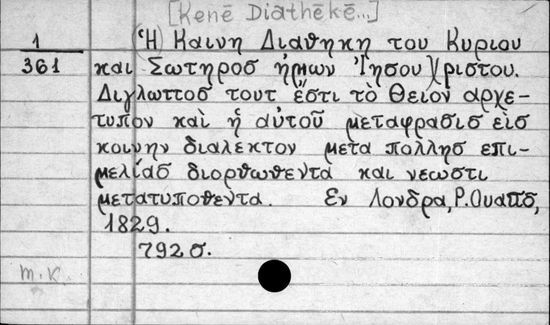 [Kenē Diathēkē...]
1
361
(Ἡ Καινη Διαθηκη του Κυριου
και Σωτηροσ ἡμων Ἰησου Χριστου.
Διγλωττοσ τουτ ἔστι τὸ θειον αρχε-
τυπον καὶ ἡ αὐτοῦ μεταφρασισ εἰσ
κοινην διαλεκτον μετα πολλησ επι-
μελίασ διορθωθεντα και νεωστι
μετατυποθεντα. Εν Λονδρα, Ρ. Ουαπσ,
1829.
792 σ.
m.K.